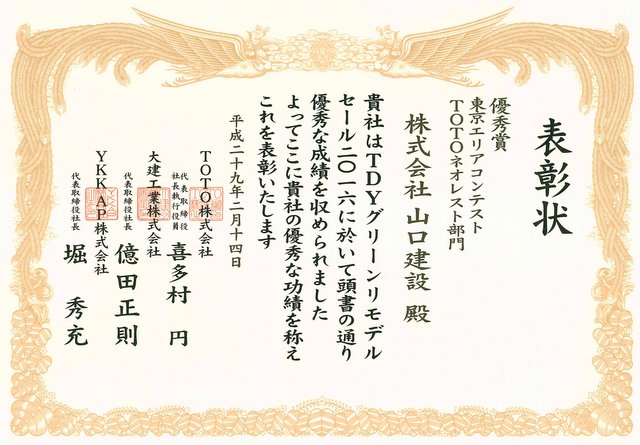 表彰状
優秀賞
東京エリアコンテスト
TOTOネオレスト部門
株式会社 山口建設 殿
貴社はTDYグリーンリモデル
セール二〇一六に於いて頭書の通り
優秀な成績を収められました
よってここに貴社の優秀な功績を称え
これを表彰いたします
平成二十九年二月十四日
TOTO株式会社
代表取締役
社長執行役員
喜多村 円
大建工業株式会社
代表取締役社長
億田正則
YKK AP株式会社
代表取締役社長
堀 秀充